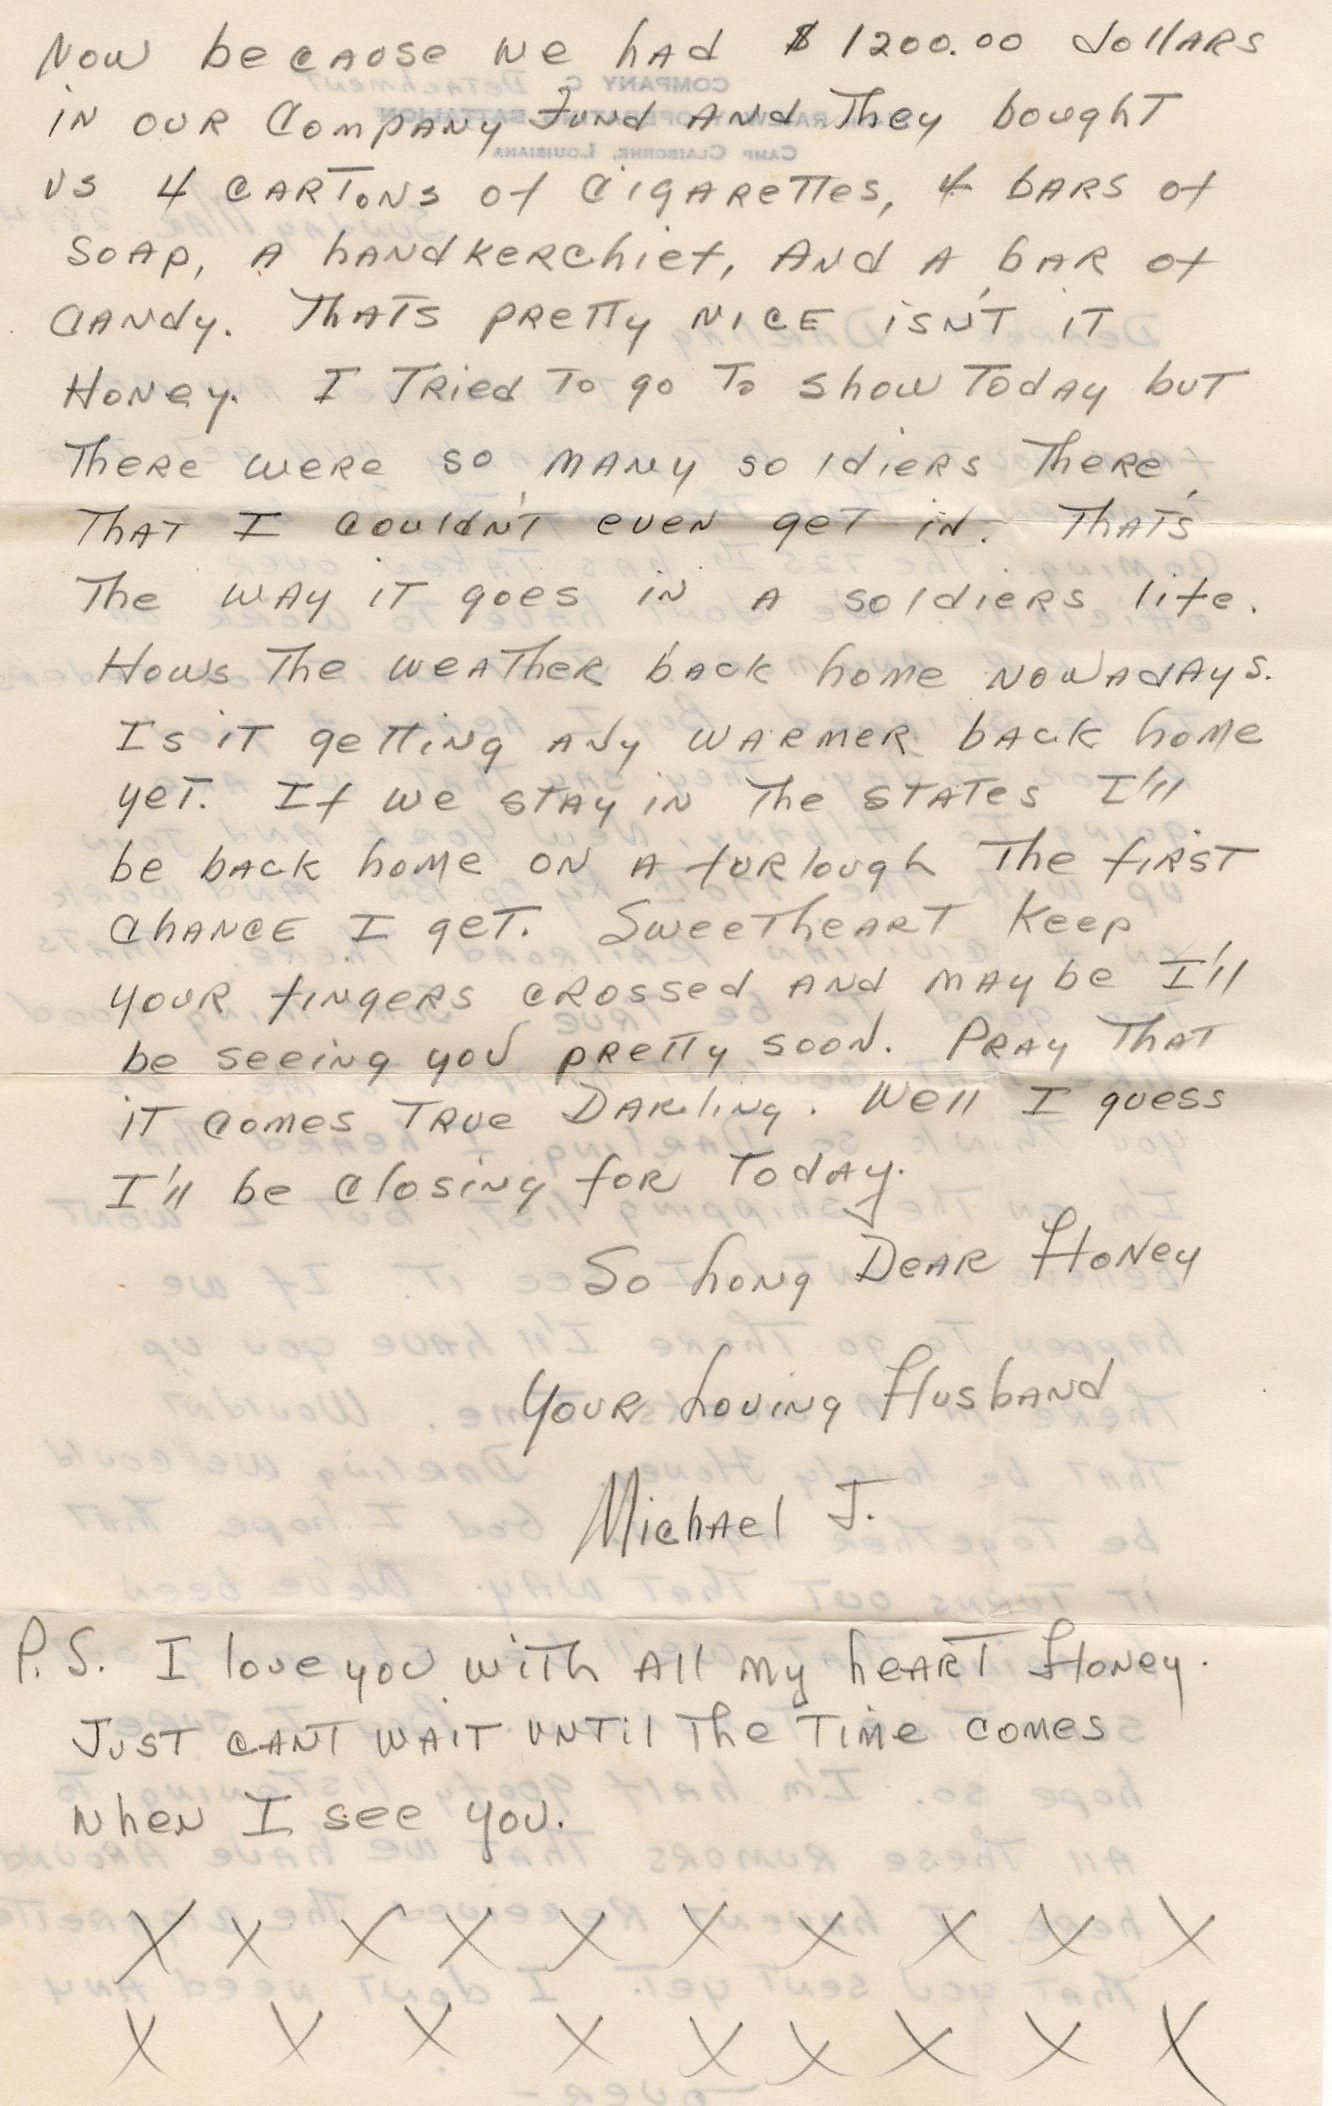 Now because we had $1200.00 dollars
in our Company Fund and They bought
us 4 cartons of cigarettes, 4 bars of
soap, a handkerchief, And a bar of
candy. Thats pretty nice isn't it
Honey. I Tried To go To show Today but
There were so many soldiers There,
That I couldn't even get in. That's
The way it goes in a soldiers life.
Hows The weather back home nowadays.
Is it getting any warmer back home
yet. If we stay in The states I'll
be back home on a furlough The first
chance I get. Sweetheart keep
your fingers crossed and maybe I'll
be seeing you pretty soon. Pray That
it comes True Darling. Well I guess
I'll be closing for Today.
So Long Dear Honey
Your Loving Husband
Michael J.
P.S. I love you with all my heart Honey.
Just cant wait until The Time comes
when I see you.
X X X X X X X X X X
X X X X X X X X X